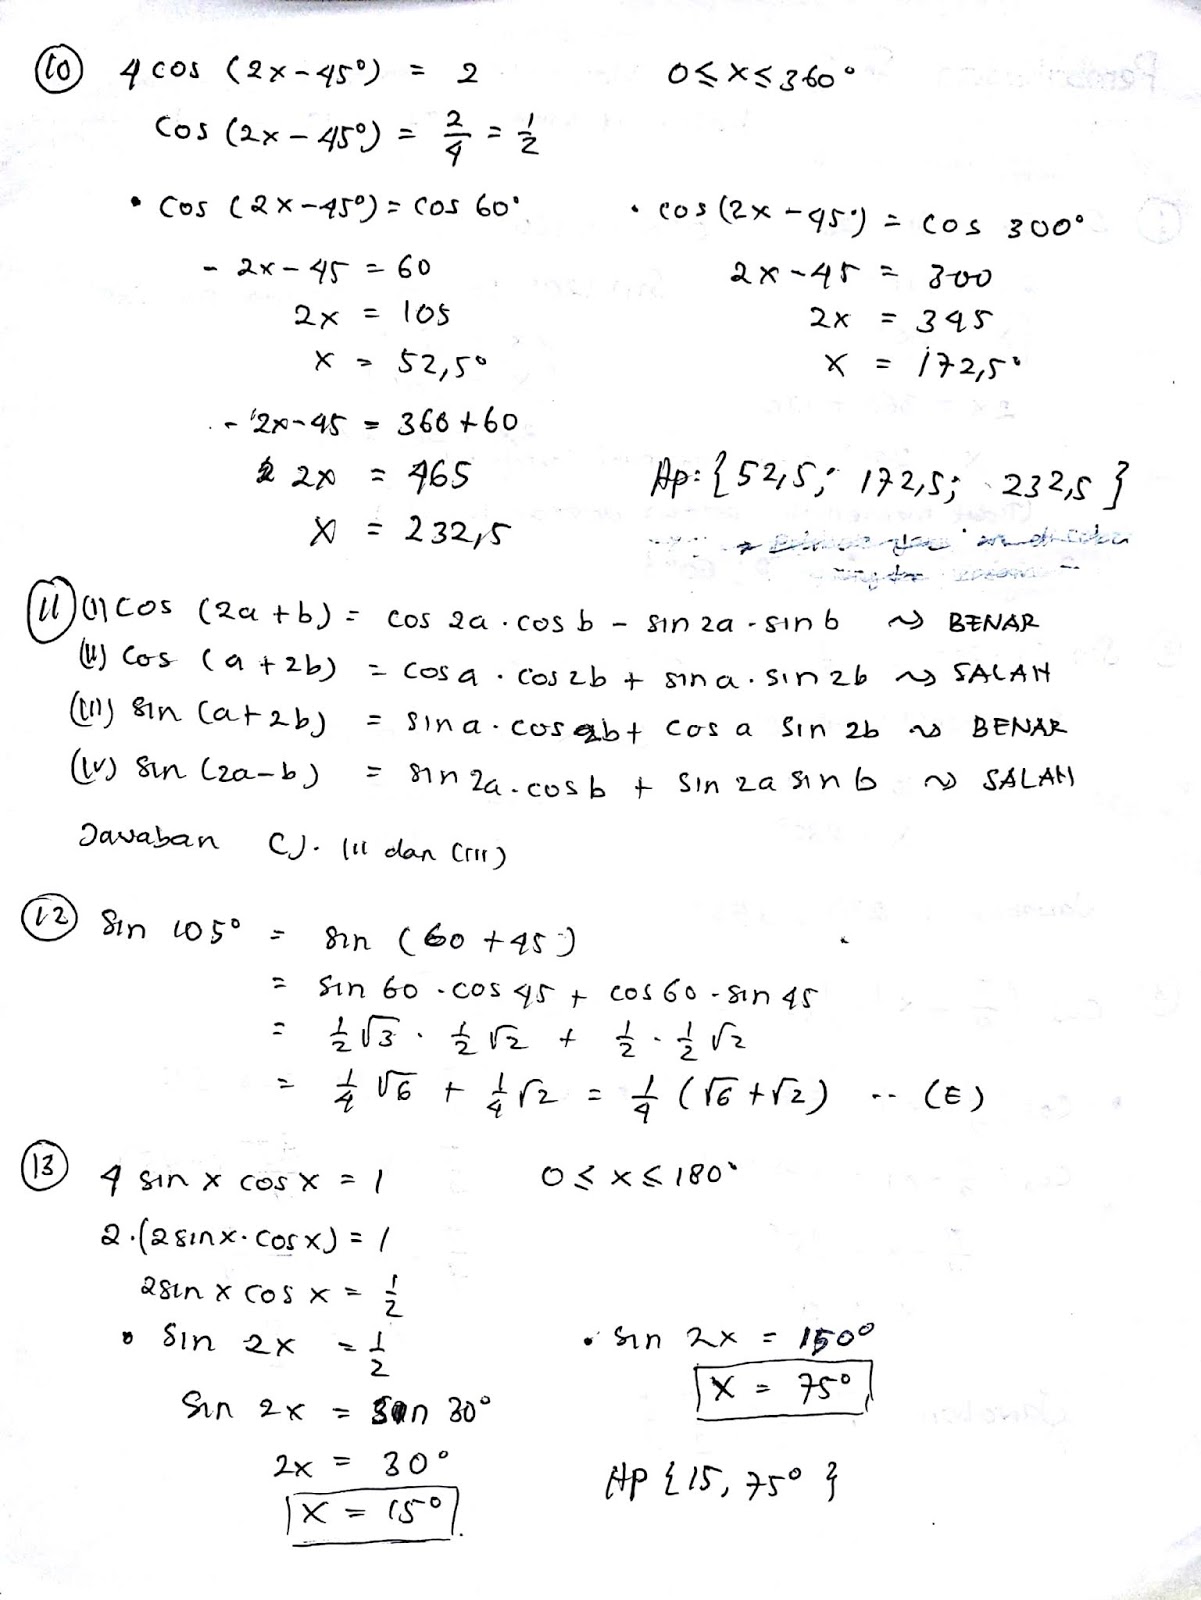 (10) 4 cos (2x - 45°) = 2    0 ≤ x ≤ 360°
cos (2x - 45°) = 2/4 = 1/2
• cos (2x - 45°) = cos 60°
- 2x - 45 = 60
2x = 105
x = 52,5°
- 2x - 45 = 360 + 60
2x = 465
x = 232,5
• cos (2x - 45°) = cos 300°
2x - 45 = 300
2x = 345
x = 172,5°
Hp: {52,5; 172,5; 232,5}
(11) (i) cos (2a + b) = cos 2a . cos b - sin 2a . sin b ~> BENAR
(ii) cos (a + 2b) = cos a . cos 2b + sin a . sin 2b ~> SALAH
(iii) sin (a + 2b) = sin a . cos 2b + cos a sin 2b ~> BENAR
(iv) sin (2a - b) = sin 2a . cos b + sin 2a sin b ~> SALAH
Jawaban C). (i) dan (iii)
(12) sin 105° = sin (60 + 45°)
= sin 60 . cos 45 + cos 60 . sin 45
= 1/2 √3 . 1/2 √2 + 1/2 . 1/2 √2
= 1/4 √6 + 1/4 √2 = 1/4 (√6 + √2) .. (E)
(13) 4 sin x cos x = 1    0 ≤ x ≤ 180°
2.(2 sin x . cos x) = 1
2 sin x cos x = 1/2
• sin 2x = 1/2
sin 2x = sin 30°
2x = 30°
x = 15°
• sin 2x = 150°
x = 75°
HP {15, 75°}